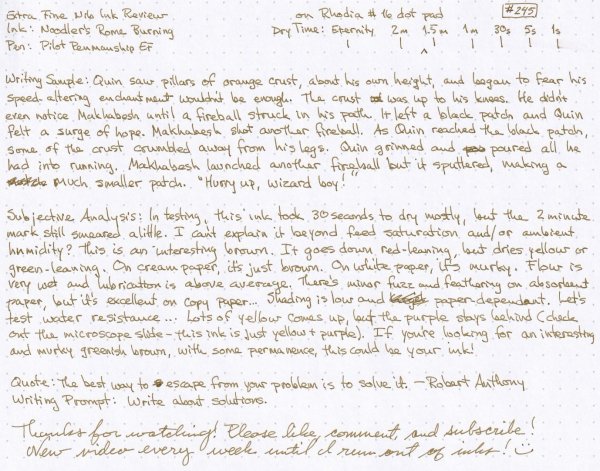 Extra Fine Nib Ink Review on Rhodia #16 dot pad #245
Ink: Noodler's Rome Burning Dry Time: Eternity 2m 1.5m 1m 30s 5s 1s
Pen: Pilot Penmanship EF
Writing Sample: Quin saw pillars of orange crust, about his own height, and began to fear his
speed-altering enchantment wouldn't be enough. The crust was up to his knees. He didn't
even notice Makhabesh until a fireball struck in his path. It left a black patch and Quin
felt a surge of hope. Makhabesh shot another fireball. As Quin reached the black patch,
some of the crust crumbled away from his legs. Quin grinned and poured all he
had into running. Makhabesh launched another fireball but it sputtered, making a
much smaller patch. "Hurry up, wizard boy!"
Subjective Analysis: In testing, this ink took 30 seconds to dry mostly, but the 2 minute
mark still smeared a little. I can't explain it beyond feed saturation and/or ambient
humidity? This is an interesting brown. It goes down red-leaning, but dries yellow or
green-leaning. On cream paper, it's just brown. On white paper, it's murky. Flow is
very wet and lubrication is above average. There's minor fuzz and feathering on absorbent
paper, but it's excellent on copy paper... Shading is low and paper-dependent. Let's
test water resistance... Lots of yellow comes up, but the purple stays behind (check
out the microscope slide - this ink is just yellow + purple). If you're looking for an interesting
and murky greenish brown, with some permanence, this could be your ink!
Quote: The best way to escape from your problem is to solve it. - Robert Anthony
Writing Prompt: Write about solutions.
Thanks for watching! Please like, comment, and subscribe!
New video every week until I run out of inks!